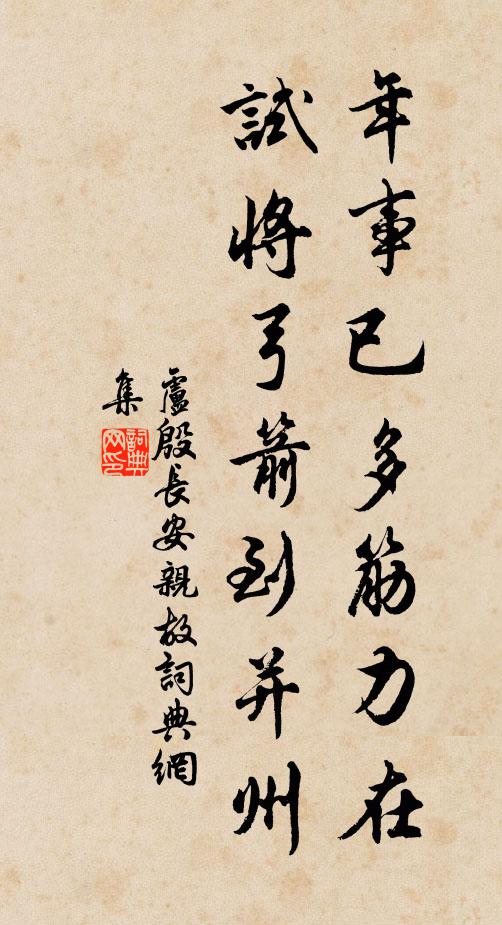 年事已多筋力在
試將弓箭到并州
盧殷長安親故詞典網
集
詞典
网印